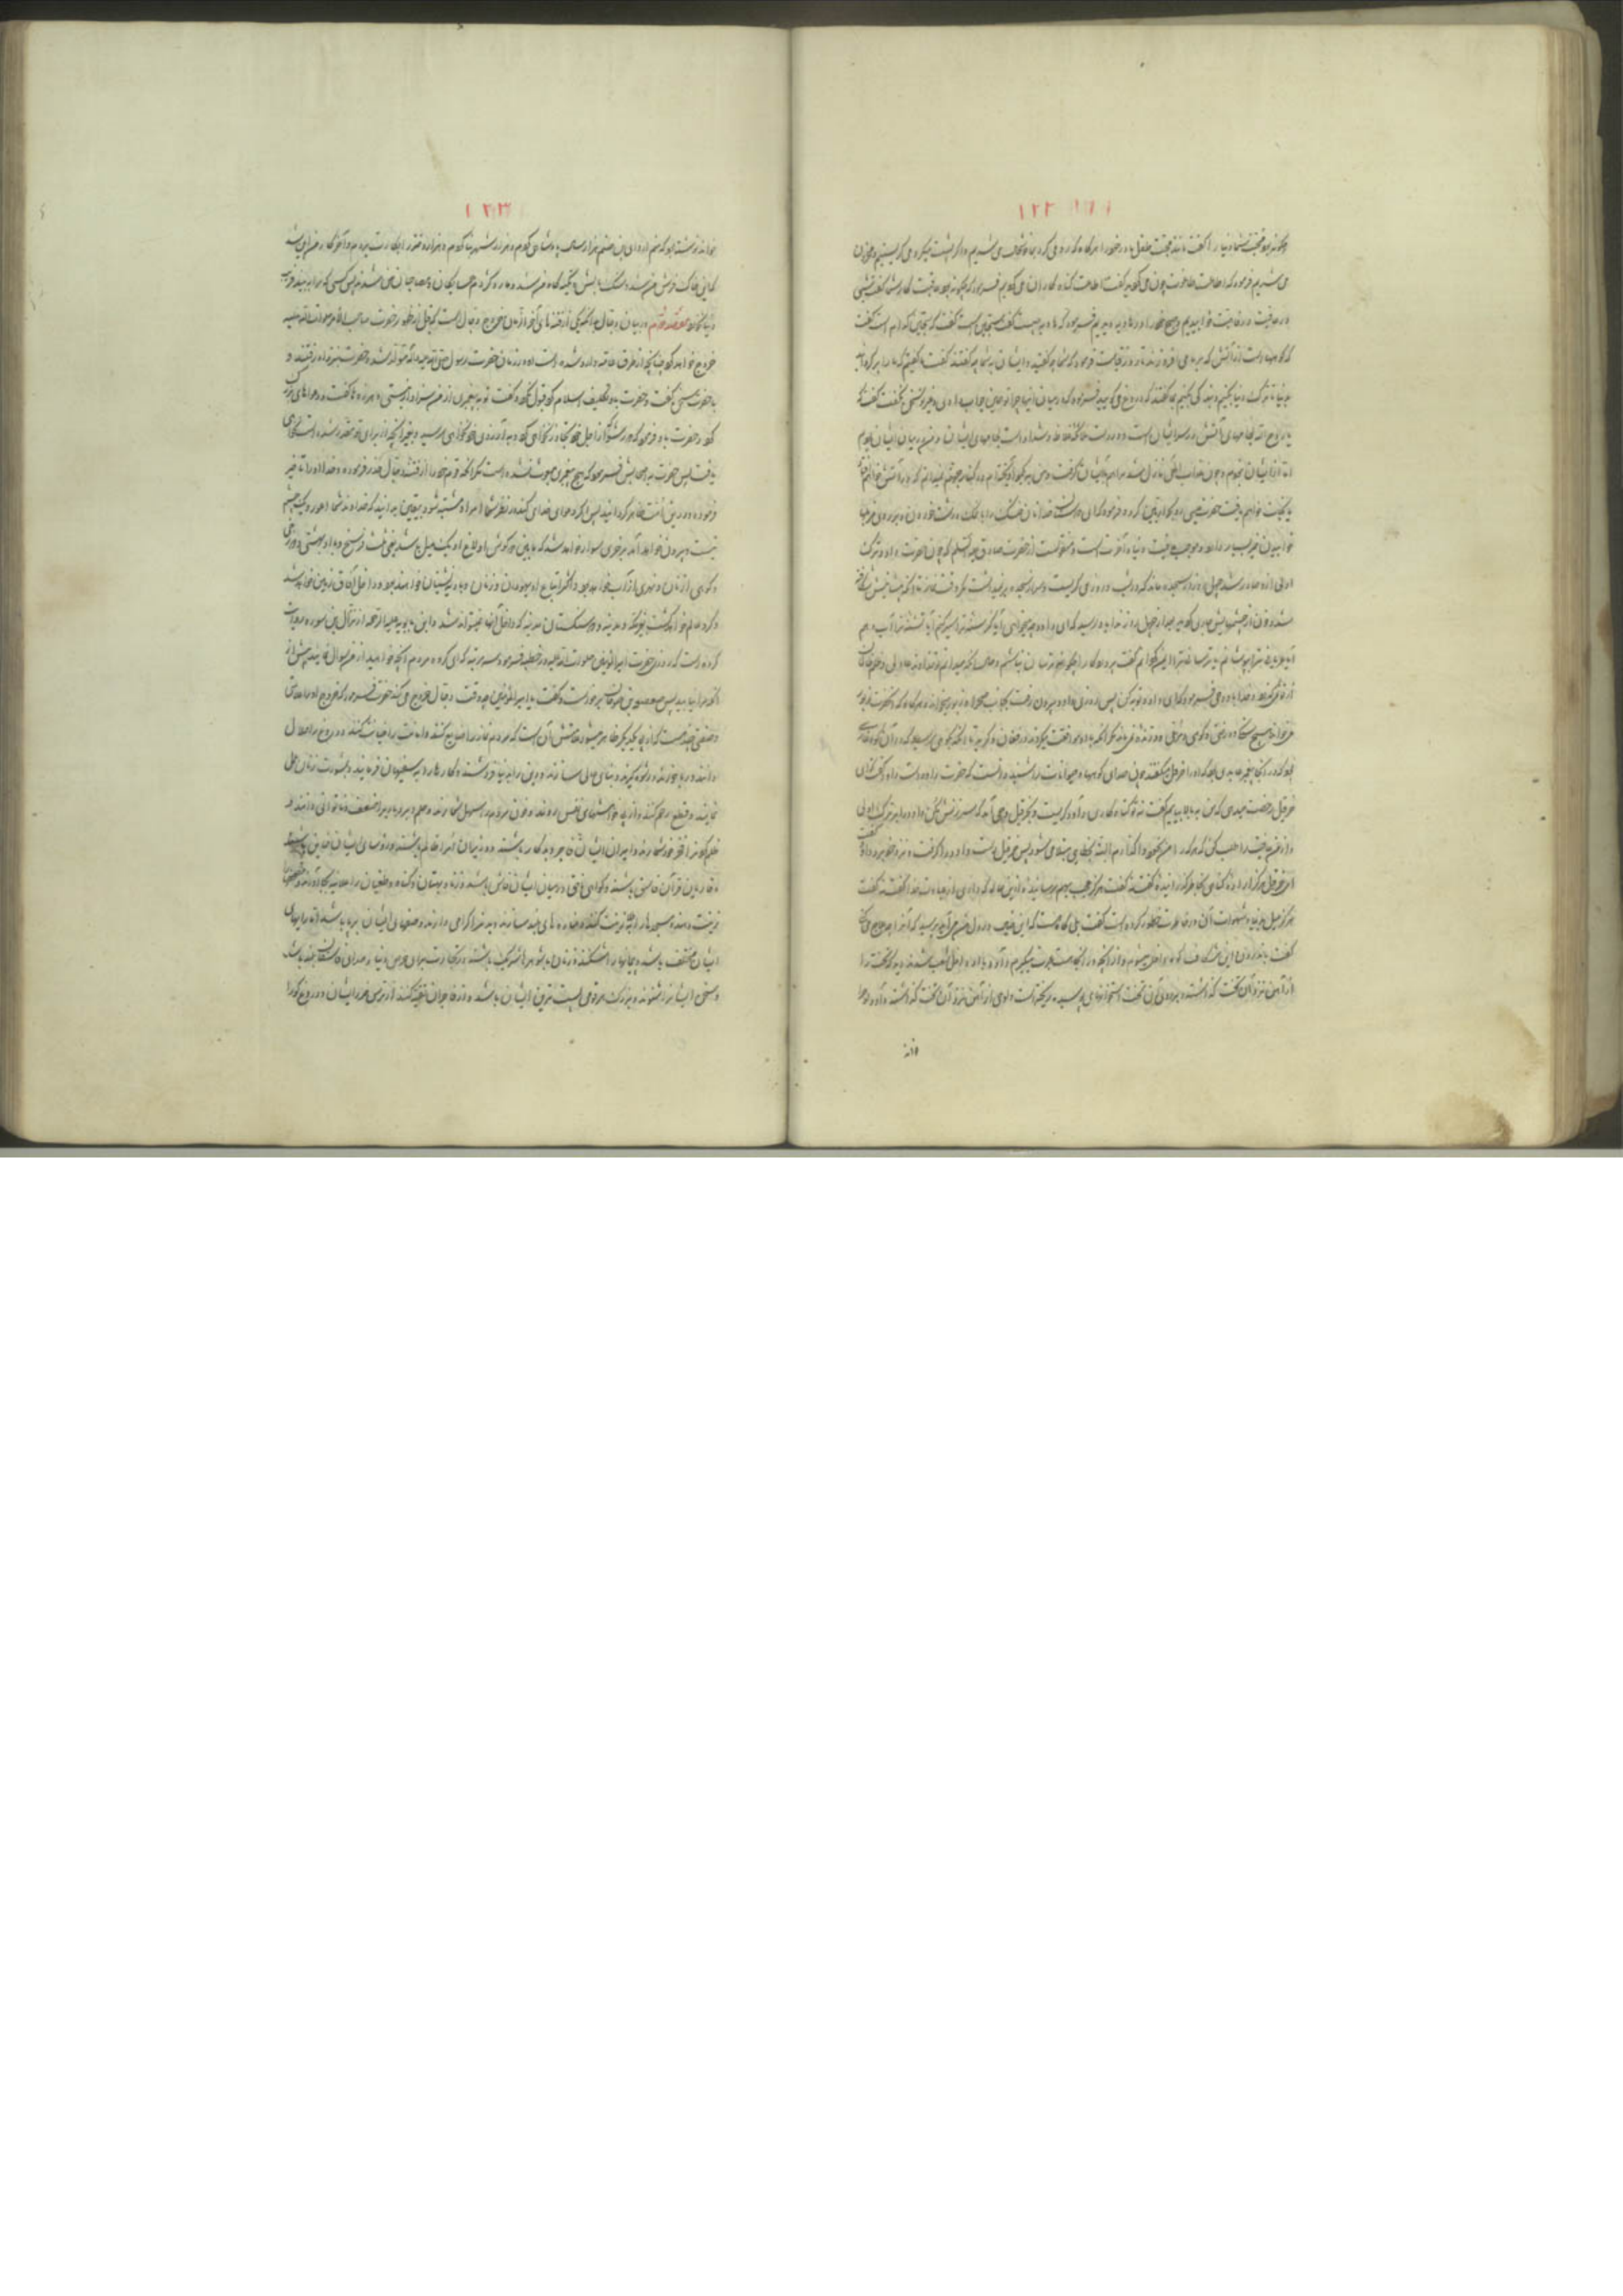 ۱۲۲
چگونه بود محبت شما دنیا را گفت مانند محبت طفل مادر خود را هرگاه که رو می کرد بما خوشحال می شدیم و اگر پشت میکرد می گریستیم و محزون
می شدیم فرمود که اطاعت طاغوت چون می کردید گفت اطاعت گناه کاران می کردیم فرمود که چگونه بود عاقبت کار شما گفت شبی
در عافیت خوابیدیم و صبح خود را در هاویه دیدیم فرمود که هاویه چیست گفت سجین است گفت که سجین کدام است گفت
که کوهها است از آتش که بر ما می افروزند تا روز قیامت فرمود که شما چه گفتید و ایشان بشما چه گفتند گفت ما گفتیم که ما را برگردانید
بدنیا تا ترک دنیا بکنیم و بندگی کنیم بما گفتند که دروغ می گویید فرمود که در میان اینها چرا تو همین جواب دادی و دیگری سخن نگفت گفت که
یا روح الله لجامهای آتش در سر ایشان است و در دست ملائکه غلاظ و شداد است لجامهای ایشان و من در میان ایشان بودم
اما از ایشان نبودم و چون عذاب الهی نازل شد مرا هم با ایشان گرفت و من به یک مو آویخته ام در کنار جهنم نمیدانم که در آتش خواهم افتاد
یا نجات خواهم یافت حضرت عیسی رو بحواریین کرد و فرمود که ای دوستان خدا نان خشک را با نمک درشت خوردن و بر روی مزبلها
خوابیدن خیر بسیار دارد و موجب عافیت دنیا و آخرت است و منقولست از حضرت صادق علیه السلام که چون حضرت داود ترک
اولی از او صادر شد چهل روز در سجده ماند که در شب و روز می گریست و سر از سجده بر نمیداشت مگر وقت نماز تا آنکه پیشانیش شکافته
شد و خون از چشمهایش جاری گردید بعد از چهل روز ندا باو رسید که ای داود چه میخواهی آیا گرسنه ترا سیر کنم آیا تشنه ترا آب دهم
آیا عریانی ترا بپوشانم آیا ترسانی ترا ایمن گردانم گفت پروردگارا چگونه ترسان نباشم و حال آنکه میدانم تو خداوند عادلی و ظلم ظالمان
از تو نمی گذرد خدا باو وحی فرمود که ای داود توبه کن پس روزی داود بیرون رفت بجانب صحرا و زبور میخواند و هرگاه که آنحضرت زبور
می خواند هیچ سنگ و درختی و کوهی و مرغی و درنده نمی ماند مگر آنکه با او موافقت میکردند در فغان و گریه تا آنکه بکوهی رسید که در آن کوه غاری
بود که در آنجا پیغمبر عابدی بود که او را حزقیل میگفتند چون صدای کوهها و حیوانات را شنید دانست که حضرت داود است داود گفت که ای
حزقیل رخصت میدهی که من به بالا بیایم گفت نه تو گناه کاری داود گریست و بحزقیل وحی آمد که سرزنش مکن داود را بر ترک اولی
و از من عافیت را طلب کن که هر که را من بخود واگذارم البته بخطایی مبتلا می شود پس حزقیل دست داود را گرفت و نزد خود برد داود گفت
ای حزقیل هرگز اراده گناهی بخاطر گذرانیده گفت نه گفت هرگز عجب بهم رسانیده از این حال که داری از عبادت خدا گفت نه گفت
هرگز میل بدنیا و شهوات آن در خاطرت خطور کرده است گفت بلی گاه هست که این معنی در دل من می آید پرسید که آنرا بچه علاج می کنی
گفت باندرون این شکاف کوه داخل میشوم و از آنچه در آنجاست عبرت میگیرم داود با او داخل شعب شدند دید که تختی را
از آهن نزد آن تخت گذاشته و بر روی آن تخت استخوانهای پوسیده ریخته است و لوحی از آهن نزد آن تخت گذاشته داود لوح را
خواند
۱۲۳
خواند نوشته بود که منم اروای بن شلم هزار سال پادشاهی کردم و هزار شهر بنا کردم و هزار دختر را بکارت بردم و آخر کار من این شد
که این خاک فرش من شد و سنگ بالش و تکیه گاه من شد و مار و کرم همسایگان و مصاحبان من شدند پس کسی که مرا ببیند فریب
دنیا نخورد مقصد دوم در بیان دجال بدانکه یکی از فتنه های آخر الزمان خروج دجال است که قبل از ظهور حضرت صاحب الامر صلوات الله علیه
خروج خواهد کرد چنانچه از طرق عامه وارد شده است او در زمان حضرت رسول صلی الله علیه و آله متولد شد و حضرت بنزد او رفتند و
با حضرت سخن گفت و حضرت باو تکلیف اسلام کرد قبول نکرد و گفت تو به پیغمبری از من سزاوارتر نیستی و هرزه ها گفت و دعواهای بزرگ
کرد و حضرت باو فرمود که دور شو که از اجل خود تجاوز نخواهی کرد و به آرزوی خود نخواهی رسید و بغیر آنچه از برای تو مقدر شده است نخواهی
یافت پس حضرت به اصحابش فرمود که هیچ پیغمبری مبعوث نشده است مگر آنکه قوم خود را از فتنه دجال حذر فرموده و خدا او را تأخیر
فرموده و در این امت ظاهر گردانید پس اگر دعوای خدایی کند و در نظر شما امر او مشتبه شود بیقین بدانید که خداوند شما اعور و یک چشم
نیست و بیرون خواهد آمد بر خری سوار خواهد شد که مابین دو گوش او الاغ او یک میل باشد یعنی ثلث فرسخ و با او بهشتی و دوزخی
و کوهی از نان و نهری از آب خواهد بود و اکثر اتباع او یهودان و زنان و بادیه نشینان خواهند بود و داخل آفاق زمین خواهد شد
و گرد عالم خواهد گشت بغیر مکه و مدینه و دو سنگستان مدینه که داخل آنها نمیتواند شد و ابن بابویه علیه الرحمه از نزال بن سبره روایت
کرده است که روزی حضرت امیر المؤمنین صلوات الله علیه در خطبه فرمود سه مرتبه که ای گروه مردم آنچه خواهید از من سوال نمایید پیش از آن
که مرا نیابید پس صعصعه بن صوحان برخاست و گفت یا امیر المؤمنین چه وقت دجال خروج می کند حضرت فرمود که خروج او علامات
و صفتی چند هست که از پی یکدیگر ظاهر میشود علامتش آن است که مردم نماز را ضایع کنند و امانت را خیانت کنند و دروغ را حلال
دانند و ربا خورند و رشوه گیرند و بناهای عالی سازند و دین را بدنیا فروشند و کارها را به سفیهان فرمایند و بمشورت زنان عمل
نمایند و قطع رحم کنند و از پی خواهشهای نفس روند و خون مردم را سهل شمارند و حلم و بردباری را ضعف و ناتوانی دانند و
ظلم کردن را فخر خود شمارند و امیران ایشان فاجر و بدکار باشند و وزیران ایشان ظالم باشند و رؤسای ایشان خاین باشند
و قاریان قرآن فاسق باشند و گواهی ناحق در میان ایشان فاش باشد و زنا و بهتان و گناه و طغیان را علانیه بجا آورند و مصحفها را
زینت دهند و مسجدها را زینت کنند و مناره های بلند سازند و بدان را گرامی دارند و صفهای ایشان پر باشد اما رایهای
ایشان مختلف باشد و پیمانها را شکنند و زنان با شوهرها شریک باشند در تجارت برای حرص دنیا و صدای فاسقان بلند باشد
و سخن ایشان را شنوند و بزرگ هر قومی پست ترین ایشان باشد و از فاجران تقیه کنند از ترس ضرر ایشان و دروغ گو را